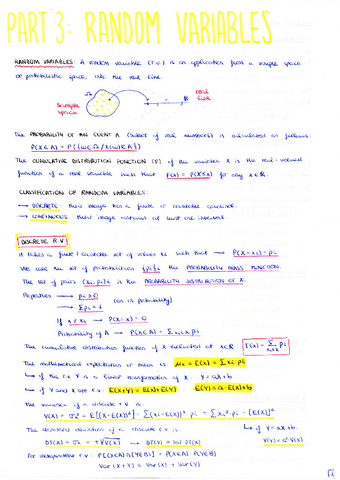 PART 3: RANDOM VARIABLES
RANDOM VARIABLES: A random variable (r.v) is an application from a sample space
or probabilistic space, into the real line
Ω
real line
sample space
ℝ
The PROBABILITY OF AN EVENT A (subset of real numbers) is calculated as follows:
P(X∈A) = P({ω∈Ω / X(ω)∈A})
The CUMULATIVE DISTRIBUTION FUNCTION of the variable X is the real-valued
function of a real variable such that F(x) = P(X≤x) for any x∈ℝ.
CLASSIFICATION OF RANDOM VARIABLES:
→ DISCRETE: their image has a finite or countable
→ CONTINUOUS: their image contains at least one interval.
DISCRETE R.V
It takes a finite / countable set of values xi such that → P(X=xi)=pi
We call the set of probabilities {pi}i the PROBABILITY MASS FUNCTION.
The set of pairs (xi,pi)i is the PROBABILITY DISTRIBUTION OF X.
Properties → pi>0 (as is probability)
→ Σpi=1
If x≠xi → P(X=x)=0
Probability of A → P(X∈A) = Σxi∈A pi
The cumulative distribution function of X evaluated at x∈ℝ F(x) = Σ pi
xi≤x
The mathematical expectation or mean is: μx = E(X) = Σxi pi
↳ if the r.v Y is a linear transformation of X: Y=aX+b
↳ if Y and X are r.v: E(X+Y) = E(X)+E(Y) E(Y)=a·E(X)+b
The variance of a discrete r.v is
V(X) = σx² = E[(X-E(X))²] = Σ(xi-E(X))² pi = Σxi² pi - [E(X)]²
The standard deviation of a discrete r.v is: ↳ if Y=aX+b,
DT(X) = σx = +√V(X) → DT(Y) = |a| DT(X) V(Y)=a²V(X)
For independent r.v: P(X∈A ∩ Y∈B) = P(X∈A) P(Y∈B)
Var (X+Y) = Var(X) + Var(Y)